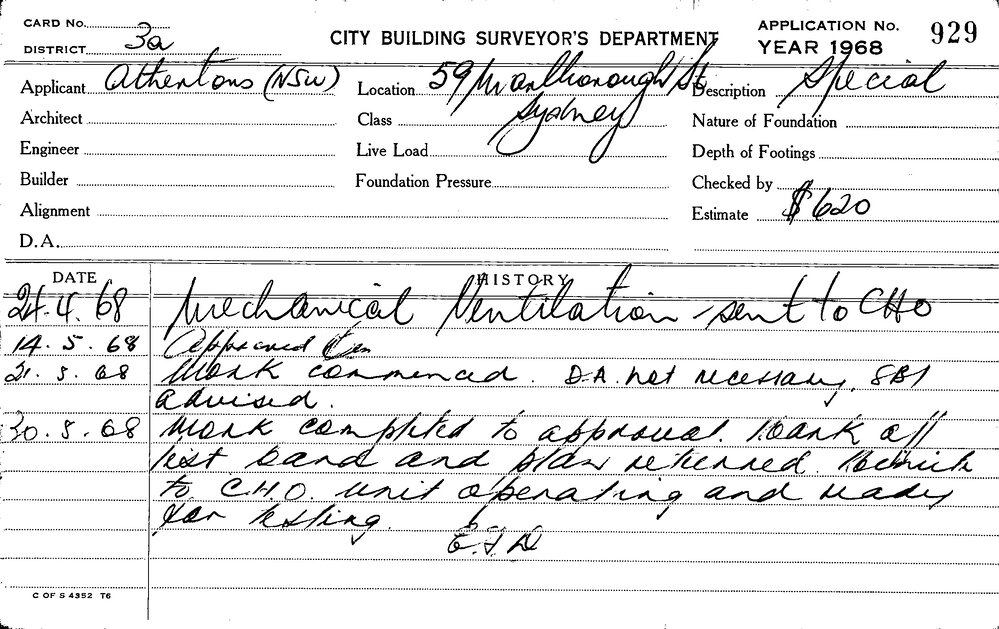 CARD No.
DISTRICT 3a
CITY BUILDING SURVEYOR'S DEPARTMENT
APPLICATION No. 929
YEAR 1968
Applicant Athertons (NSW)
Location 59 Marlborough St
Sydney
Description Special
Architect
Class
Nature of Foundation
Engineer
Live Load
Depth of Footings
Builder
Foundation Pressure
Checked by
Alignment
Estimate $620
D.A.
DATE HISTORY
24.4.68 Mechanical Ventilation - sent to CHO
14.5.68 Approved
21.5.68 Work commenced. D.A. not necessary, SBI
advised.
30.5.68 Work completed to approval. Mark off
list card and plan returned.
to C.H.O. unit operating and ready
for testing.
C OF S 4352 T6